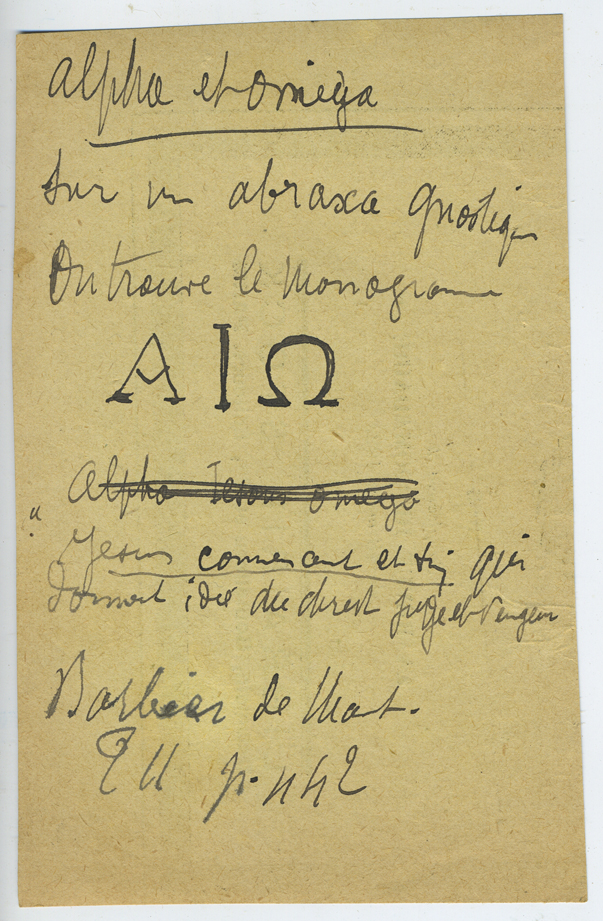 Alpha et Omega
Sur un abraxa gnostique
On trouve le Monogramme
ΑΙΩ
Alpha Iesous omega
"
Jesus commencant et fin qui
donnent idée du christ juge et vengeur
Barbier de Mont.
T II p. 442